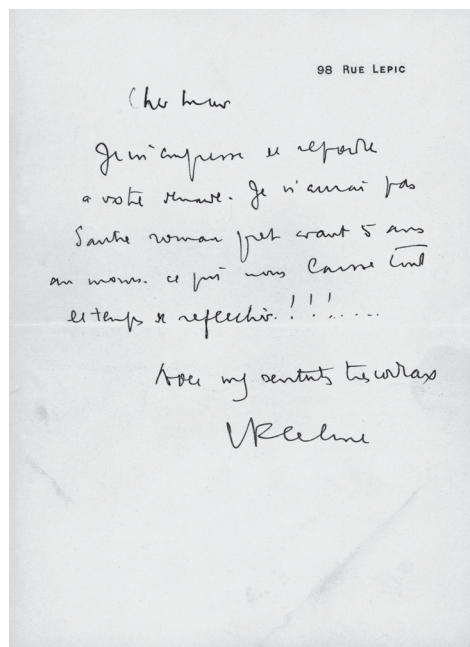 98 RUE LEPIC
Cher
Je m'empresse de repondre
a votre demande. Je n'aurai pas
d'autre roman pret avant 5 ans
au moins. ce qui nous laisse tout
le temps de reflechir.!!!.....
Avec mes sentiments tres cordiaux
LF Celine